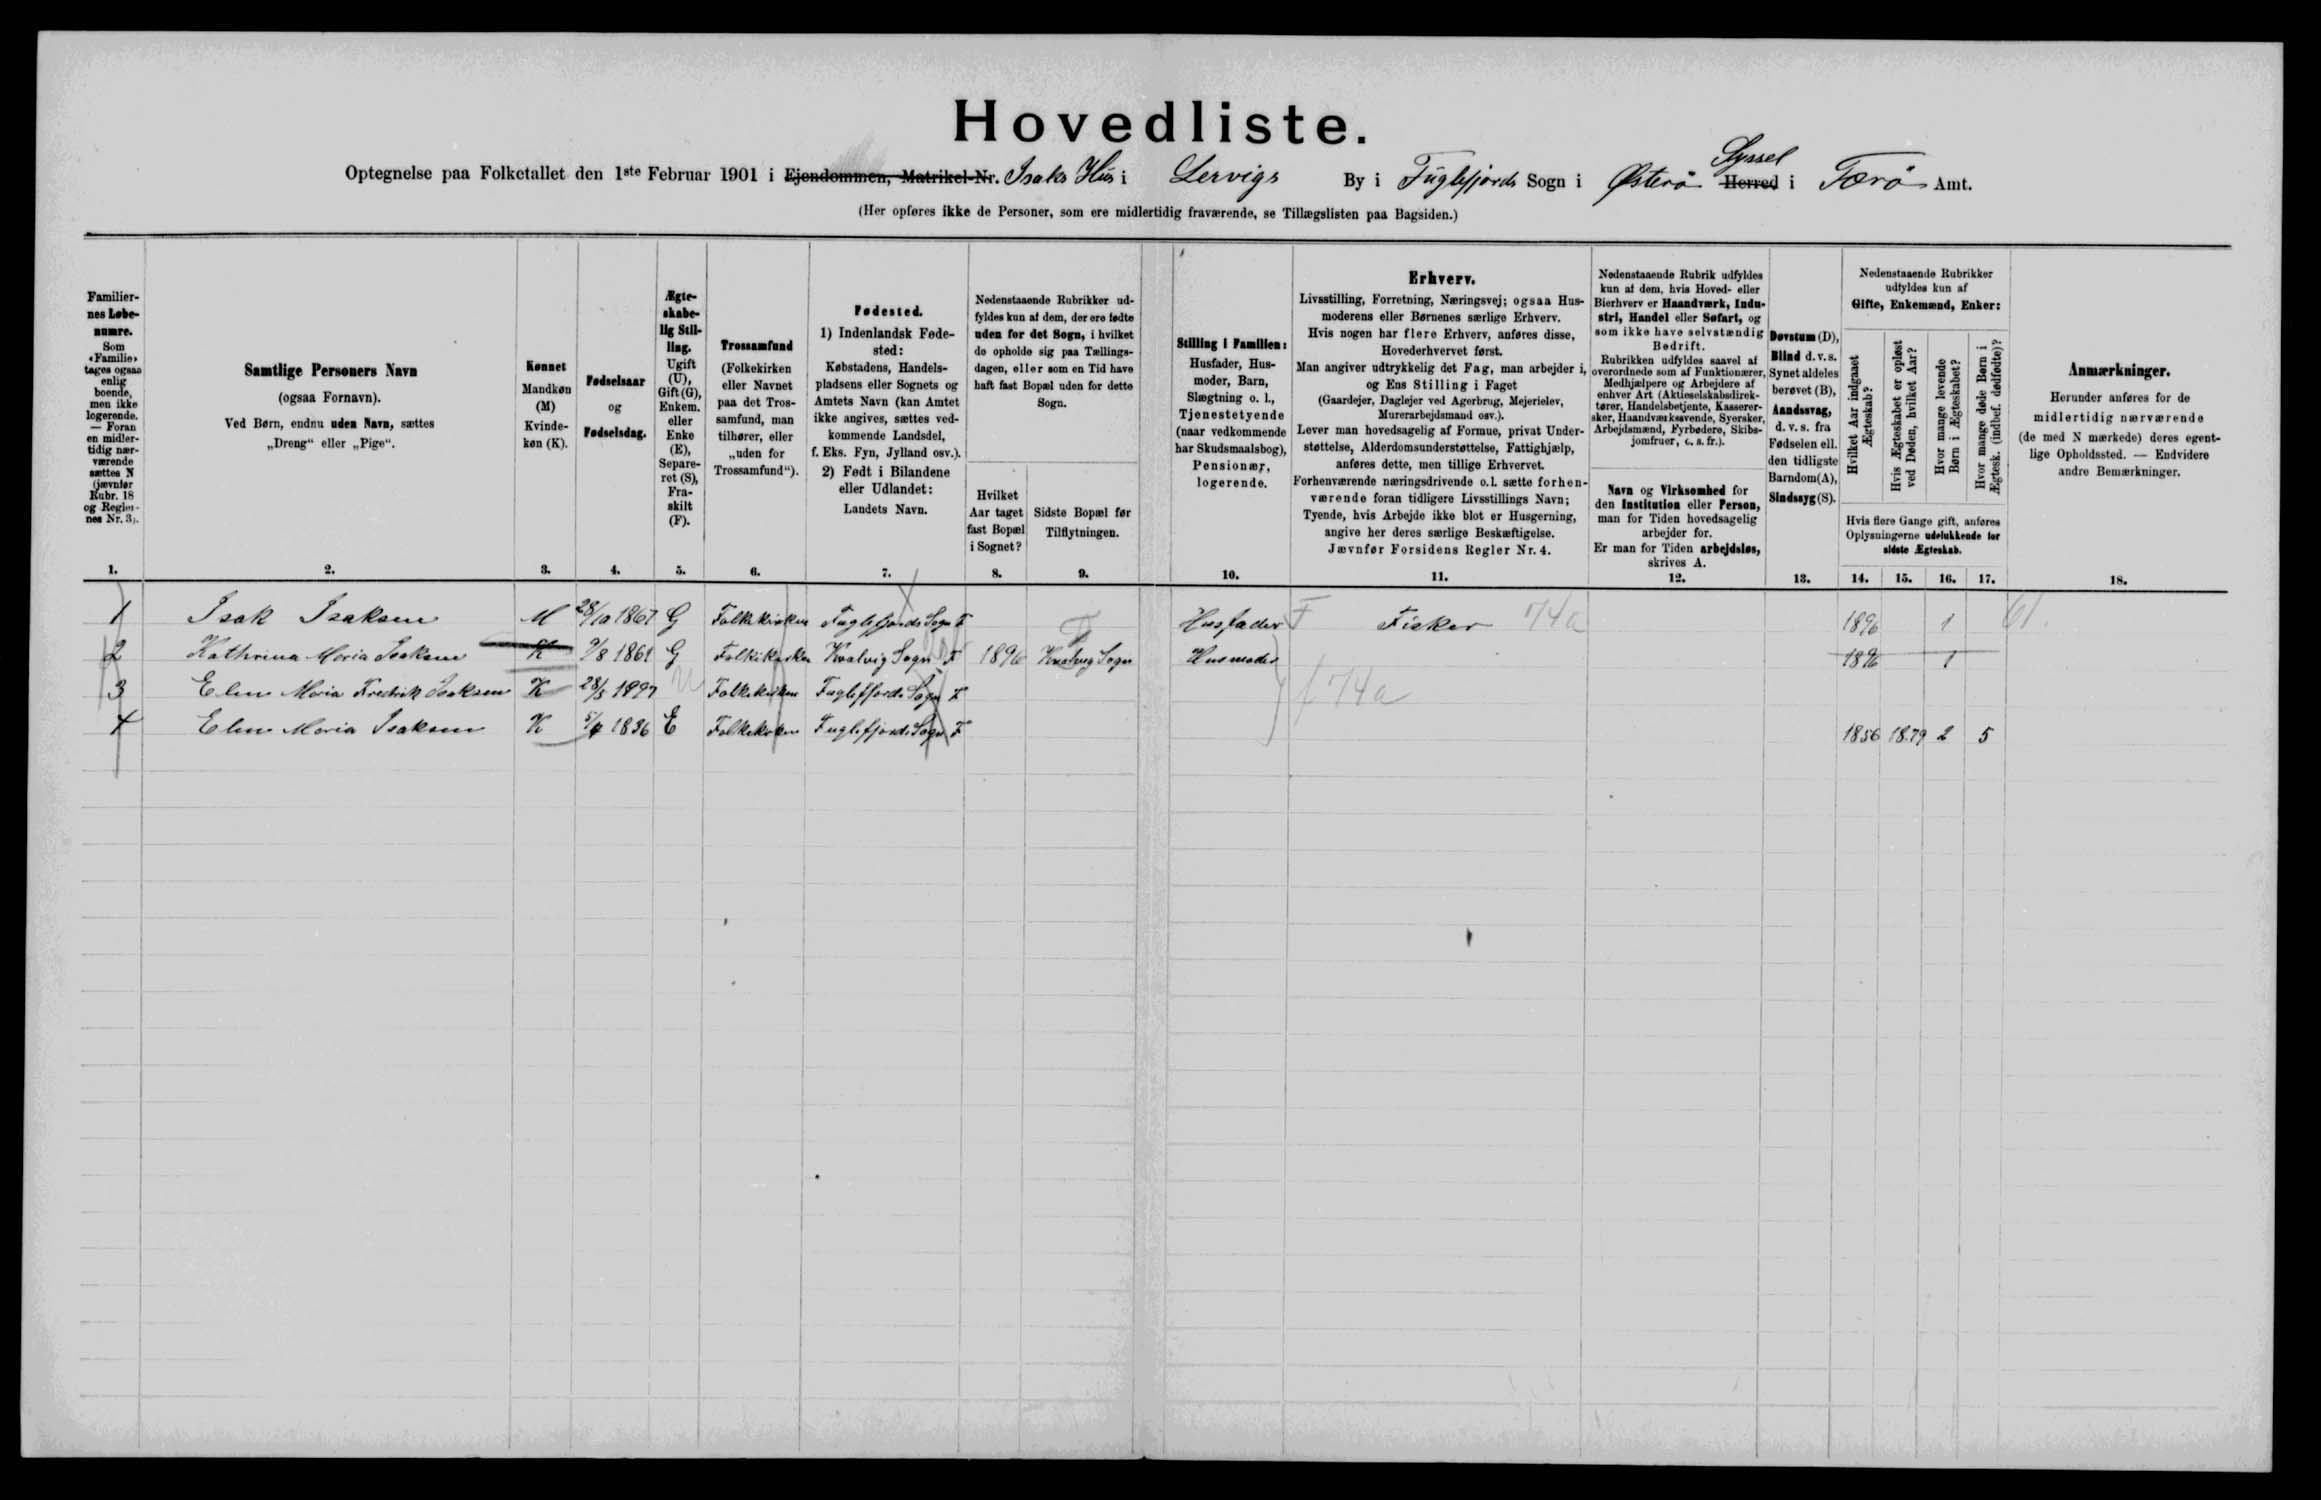 Hovedliste.
Syssel
Optegnelse paa Folketallet den 1ste Februar 1901 i Ejendommen, Matrikel-Nr. Isaks Hus i Lervigs By i Fuglefjords Sogn i Østerø Herred i Færø Amt.
(Her opføres ikke de Personer, som ere midlertidig fraværende, se Tillægslisten paa Bagsiden.)
Familier-
nes Løbe-
numre.
Som
«Familie»
tages ogsaa
enlig
boende,
men ikke
logerende.
— Foran
en midler-
tidig nær-
værende
sættes N
(jævnfør
Rubr. 18
og Regler-
nes Nr. 3).
1.
Samtlige Personers Navn
(ogsaa Fornavn).
Ved Børn, endnu uden Navn, sættes
„Dreng“ eller „Pige“.
2.
Kønnet
Mandkøn
(M)
Kvinde-
køn (K).
3.
Fødselsaar
og
Fødselsdag.
4.
Ægte-
skabe-
lig Stil-
ling.
Ugift
(U),
Gift (G),
Enkem.
eller
Enke
(E),
Separe-
ret (S),
Fra-
skilt
(F).
5.
Trossamfund
(Folkekirken
eller Navnet
paa det Tros-
samfund, man
tilhører, eller
„uden for
Trossamfund“).
6.
Fødested.
1) Indenlandsk Føde-
sted:
Købstadens, Handels-
pladsens eller Sognets og
Amtets Navn (kan Amtet
ikke angives, sættes ved-
kommende Landsdel,
f. Eks. Fyn, Jylland osv.).
2) Født i Bilandene
eller Udlandet:
Landets Navn.
7.
Nedenstaaende Rubrikker ud-
fyldes kun af dem, der ere fødte
uden for det Sogn, i hvilket
de opholde sig paa Tællings-
dagen, eller som en Tid have
haft fast Bopæl uden for dette
Sogn.
Hvilket
Aar taget
fast Bopæl
i Sognet?
8.
Sidste Bopæl før
Tilflytningen.
9.
Stilling i Familien:
Husfader, Hus-
moder, Barn,
Slægtning o. l.,
Tjenestetyende
(naar vedkommende
har Skudsmaalsbog),
Pensionær,
logerende.
10.
Erhverv.
Livsstilling, Forretning, Næringsvej; ogsaa Hus-
moderens eller Børnenes særlige Erhverv.
Hvis nogen har flere Erhverv, anføres disse,
Hovederhvervet først.
Man angiver udtrykkelig det Fag, man arbejder i,
og Ens Stilling i Faget
(Gaardejer, Daglejer ved Agerbrug, Mejerielev,
Murerarbejdsmand osv.).
Lever man hovedsagelig af Formue, privat Under-
støttelse, Alderdomsunderstøttelse, Fattighjælp,
anføres dette, men tillige Erhvervet.
Forhenværende næringsdrivende o.l. sætte forhen-
værende foran tidligere Livsstillings Navn;
Tyende, hvis Arbejde ikke blot er Husgerning,
angive her deres særlige Beskæftigelse.
Jævnfør Forsidens Regler Nr. 4.
11.
Nedenstaaende Rubrik udfyldes
kun af dem, hvis Hoved- eller
Bierhverv er Haandværk, Indu-
stri, Handel eller Søfart, og
som ikke have selvstændig
Bedrift.
Rubrikken udfyldes saavel af
overordnede som af Funktionærer,
Medhjælpere og Arbejdere af
enhver Art (Aktieselskabsdirek-
tører, Handelsbetjente, Kasserer-
sker, Haandværkssvende, Syersker,
Arbejdsmænd, Fyrbødere, Skibs-
jomfruer, o. s. fr.).
Navn og Virksomhed for
den Institution eller Person,
man for Tiden hovedsagelig
arbejder for.
Er man for Tiden arbejdsløs,
skrives A.
12.
Døvstum (D),
Blind d. v. s.
Synet aldeles
berøvet (B),
Aandssvag,
d. v. s. fra
Fødselen ell.
den tidligste
Barndom (A),
Sindssyg (S).
13.
Nedenstaaende Rubrikker
udfyldes kun af
Gifte, Enkemænd, Enker:
Hvilket Aar indgaaet
Ægteskab?
Hvis Ægteskabet er opløst
ved Døden, hvilket Aar?
Hvor mange levende
Børn i Ægteskabet?
Hvor mange døde Børn i
Ægtesk. (indbef. dødfødte)?
Hvis flere Gange gift, anføres
Oplysningerne udelukkende for
sidste Ægteskab.
14. 15. 16. 17.
Anmærkninger.
Herunder anføres for de
midlertidig nærværende
(de med N mærkede) deres egent-
lige Opholdssted. — Endvidere
andre Bemærkninger.
18.
1 Isak Isaksen M 28/10 1867 G Folkekirken Fuglefjords Sogn F Husfader F Fisker 74a 1896 1 61.
2 Kathrina Maria Isaksen K 9/8 1861 G Folkekirken Kvalvig Sogn F 1896 Kvalvig Sogn Husmoder 1896 1
3 Elen Maria Fredrik Isaksen K 28/5 1897 U Folkekirken Fuglefjords Sogn F f 74a
4 Elen Maria Isaksen K 5/4 1836 E Folkekirken Fuglefjords Sogn F 1856 1879 2 5